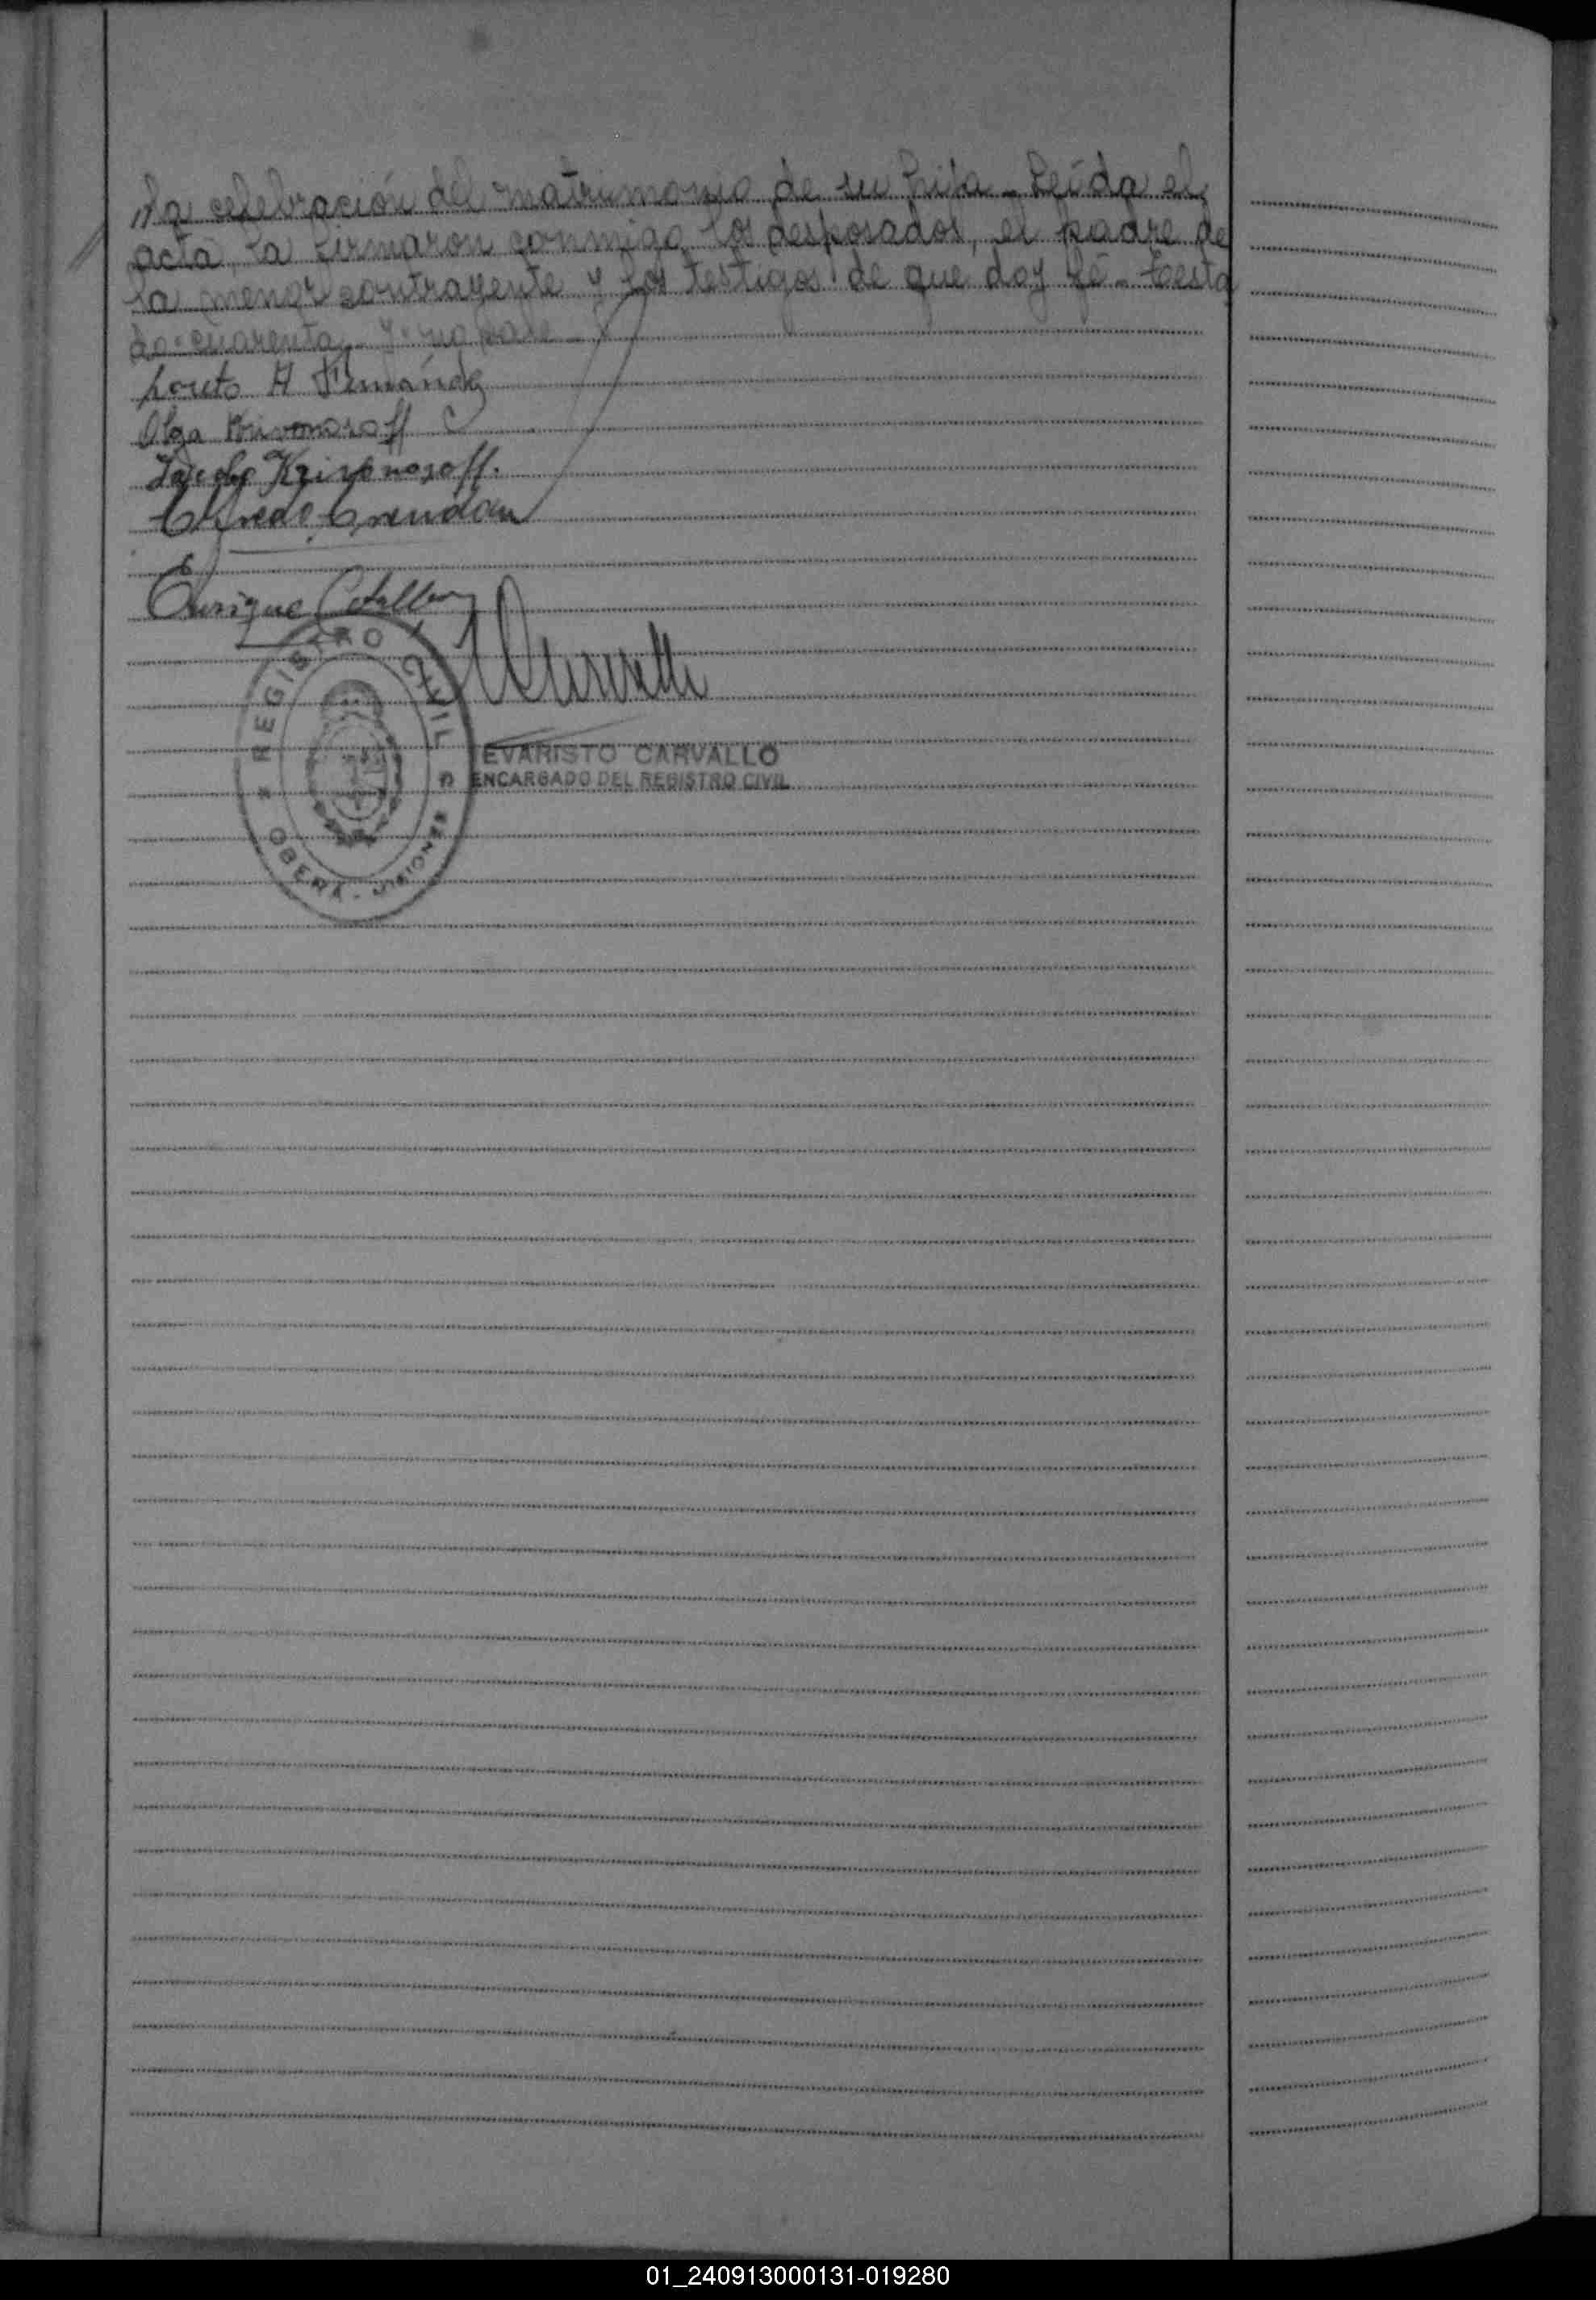 la celebración del matrimonio de su hija - Leída el
acta, la firmaron conmigo los desposados, el padre de
la menor contrayente y los testigos de que doy fé - Testa
do: cuarenta y no vale
Loreto H Fernández
Olga Krivonosoff
Jacobo Krivonosoff.
Alfredo
Enrique
REGISTRO CIVIL
OBERÁ - MISIONES
EVARISTO CARVALLO
ENCARGADO DEL REGISTRO CIVIL
01_240913000131-019280